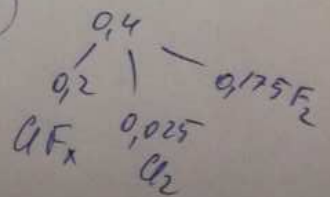 0,4
0,2
0,175 F₂
Cl Fₓ
0,025
Cl₂